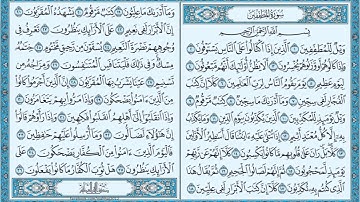 سُورَةُ المُطَفِّفِينَ
بِسْمِ ٱللَّهِ ٱلرَّحْمَٰنِ ٱلرَّحِيمِ
وَيْلٌ لِّلْمُطَفِّفِينَ ١ ٱلَّذِينَ إِذَا ٱكْتَالُوا۟ عَلَى ٱلنَّاسِ يَسْتَوْفُونَ ٢
وَإِذَا كَالُوهُمْ أَو وَّزَنُوهُمْ يُخْسِرُونَ ٣ أَلَا يَظُنُّ أُو۟لَٰٓئِكَ أَنَّهُم مَّبْعُوثُونَ ٤
لِيَوْمٍ عَظِيمٍ ٥ يَوْمَ يَقُومُ ٱلنَّاسُ لِرَبِّ ٱلْعَٰلَمِينَ ٦ كَلَّآ إِنَّ كِتَٰبَ
ٱلْفُجَّارِ لَفِى سِجِّينٍ ٧ وَمَآ أَدْرَىٰكَ مَا سِجِّينٌ ٨ كِتَٰبٌ مَّرْقُومٌ ٩
وَيْلٌ يَوْمَئِذٍ لِّلْمُكَذِّبِينَ ١٠ ٱلَّذِينَ يُكَذِّبُونَ بِيَوْمِ ٱلدِّينِ ١١ وَمَا يُكَذِّبُ بِهِۦٓ
إِلَّا كُلُّ مُعْتَدٍ أَثِيمٍ ١٢ إِذَا تُتْلَىٰ عَلَيْهِ ءَايَٰتُنَا قَالَ أَسَٰطِيرُ ٱلْأَوَّلِينَ ١٣
كَلَّا بَلْ رَانَ عَلَىٰ قُلُوبِهِم مَّا كَانُوا۟ يَكْسِبُونَ ١٤ كَلَّآ إِنَّهُمْ عَن رَّبِّهِمْ
يَوْمَئِذٍ لَّمَحْجُوبُونَ ١٥ ثُمَّ إِنَّهُمْ لَصَالُوا۟ ٱلْجَحِيمِ ١٦ ثُمَّ يُقَالُ هَٰذَا
ٱلَّذِى كُنتُم بِهِۦ تُكَذِّبُونَ ١٧ كَلَّآ إِنَّ كِتَٰبَ ٱلْأَبْرَارِ لَفِى عِلِّيِّينَ ١٨
وَمَآ أَدْرَىٰكَ مَا عِلِّيُّونَ ١٩ كِتَٰبٌ مَّرْقُومٌ ٢٠ يَشْهَدُهُ ٱلْمُقَرَّبُونَ ٢١
إِنَّ ٱلْأَبْرَارَ لَفِى نَعِيمٍ ٢٢ عَلَى ٱلْأَرَآئِكِ يَنظُرُونَ ٢٣ تَعْرِفُ فِى
وُجُوهِهِمْ نَضْرَةَ ٱلنَّعِيمِ ٢٤ يُسْقَوْنَ مِن رَّحِيقٍ مَّخْتُومٍ ٢٥ خِتَٰمُهُۥ
مِسْكٌ وَفِى ذَٰلِكَ فَلْيَتَنَافَسِ ٱلْمُتَنَٰفِسُونَ ٢٦ وَمِزَاجُهُۥ مِن
تَسْنِيمٍ ٢٧ عَيْنًا يَشْرَبُ بِهَا ٱلْمُقَرَّبُونَ ٢٨ إِنَّ ٱلَّذِينَ أَجْرَمُوا۟ كَانُوا۟
مِنَ ٱلَّذِينَ ءَامَنُوا۟ يَضْحَكُونَ ٢٩ وَإِذَا مَرُّوا۟ بِهِمْ يَتَغَامَزُونَ ٣٠
وَإِذَا ٱنقَلَبُوٓا۟ إِلَىٰٓ أَهْلِهِمُ ٱنقَلَبُوا۟ فَكِهِينَ ٣١ وَإِذَا رَأَوْهُمْ قَالُوٓا۟
إِنَّ هَٰٓؤُلَآءِ لَضَآلُّونَ ٣٢ وَمَآ أُرْسِلُوا۟ عَلَيْهِمْ حَٰفِظِينَ ٣٣
فَٱلْيَوْمَ ٱلَّذِينَ ءَامَنُوا۟ مِنَ ٱلْكُفَّارِ يَضْحَكُونَ ٣٤ عَلَى
ٱلْأَرَآئِكِ يَنظُرُونَ ٣٥ هَلْ ثُوِّبَ ٱلْكُفَّارُ مَا كَانُوا۟ يَفْعَلُونَ ٣٦